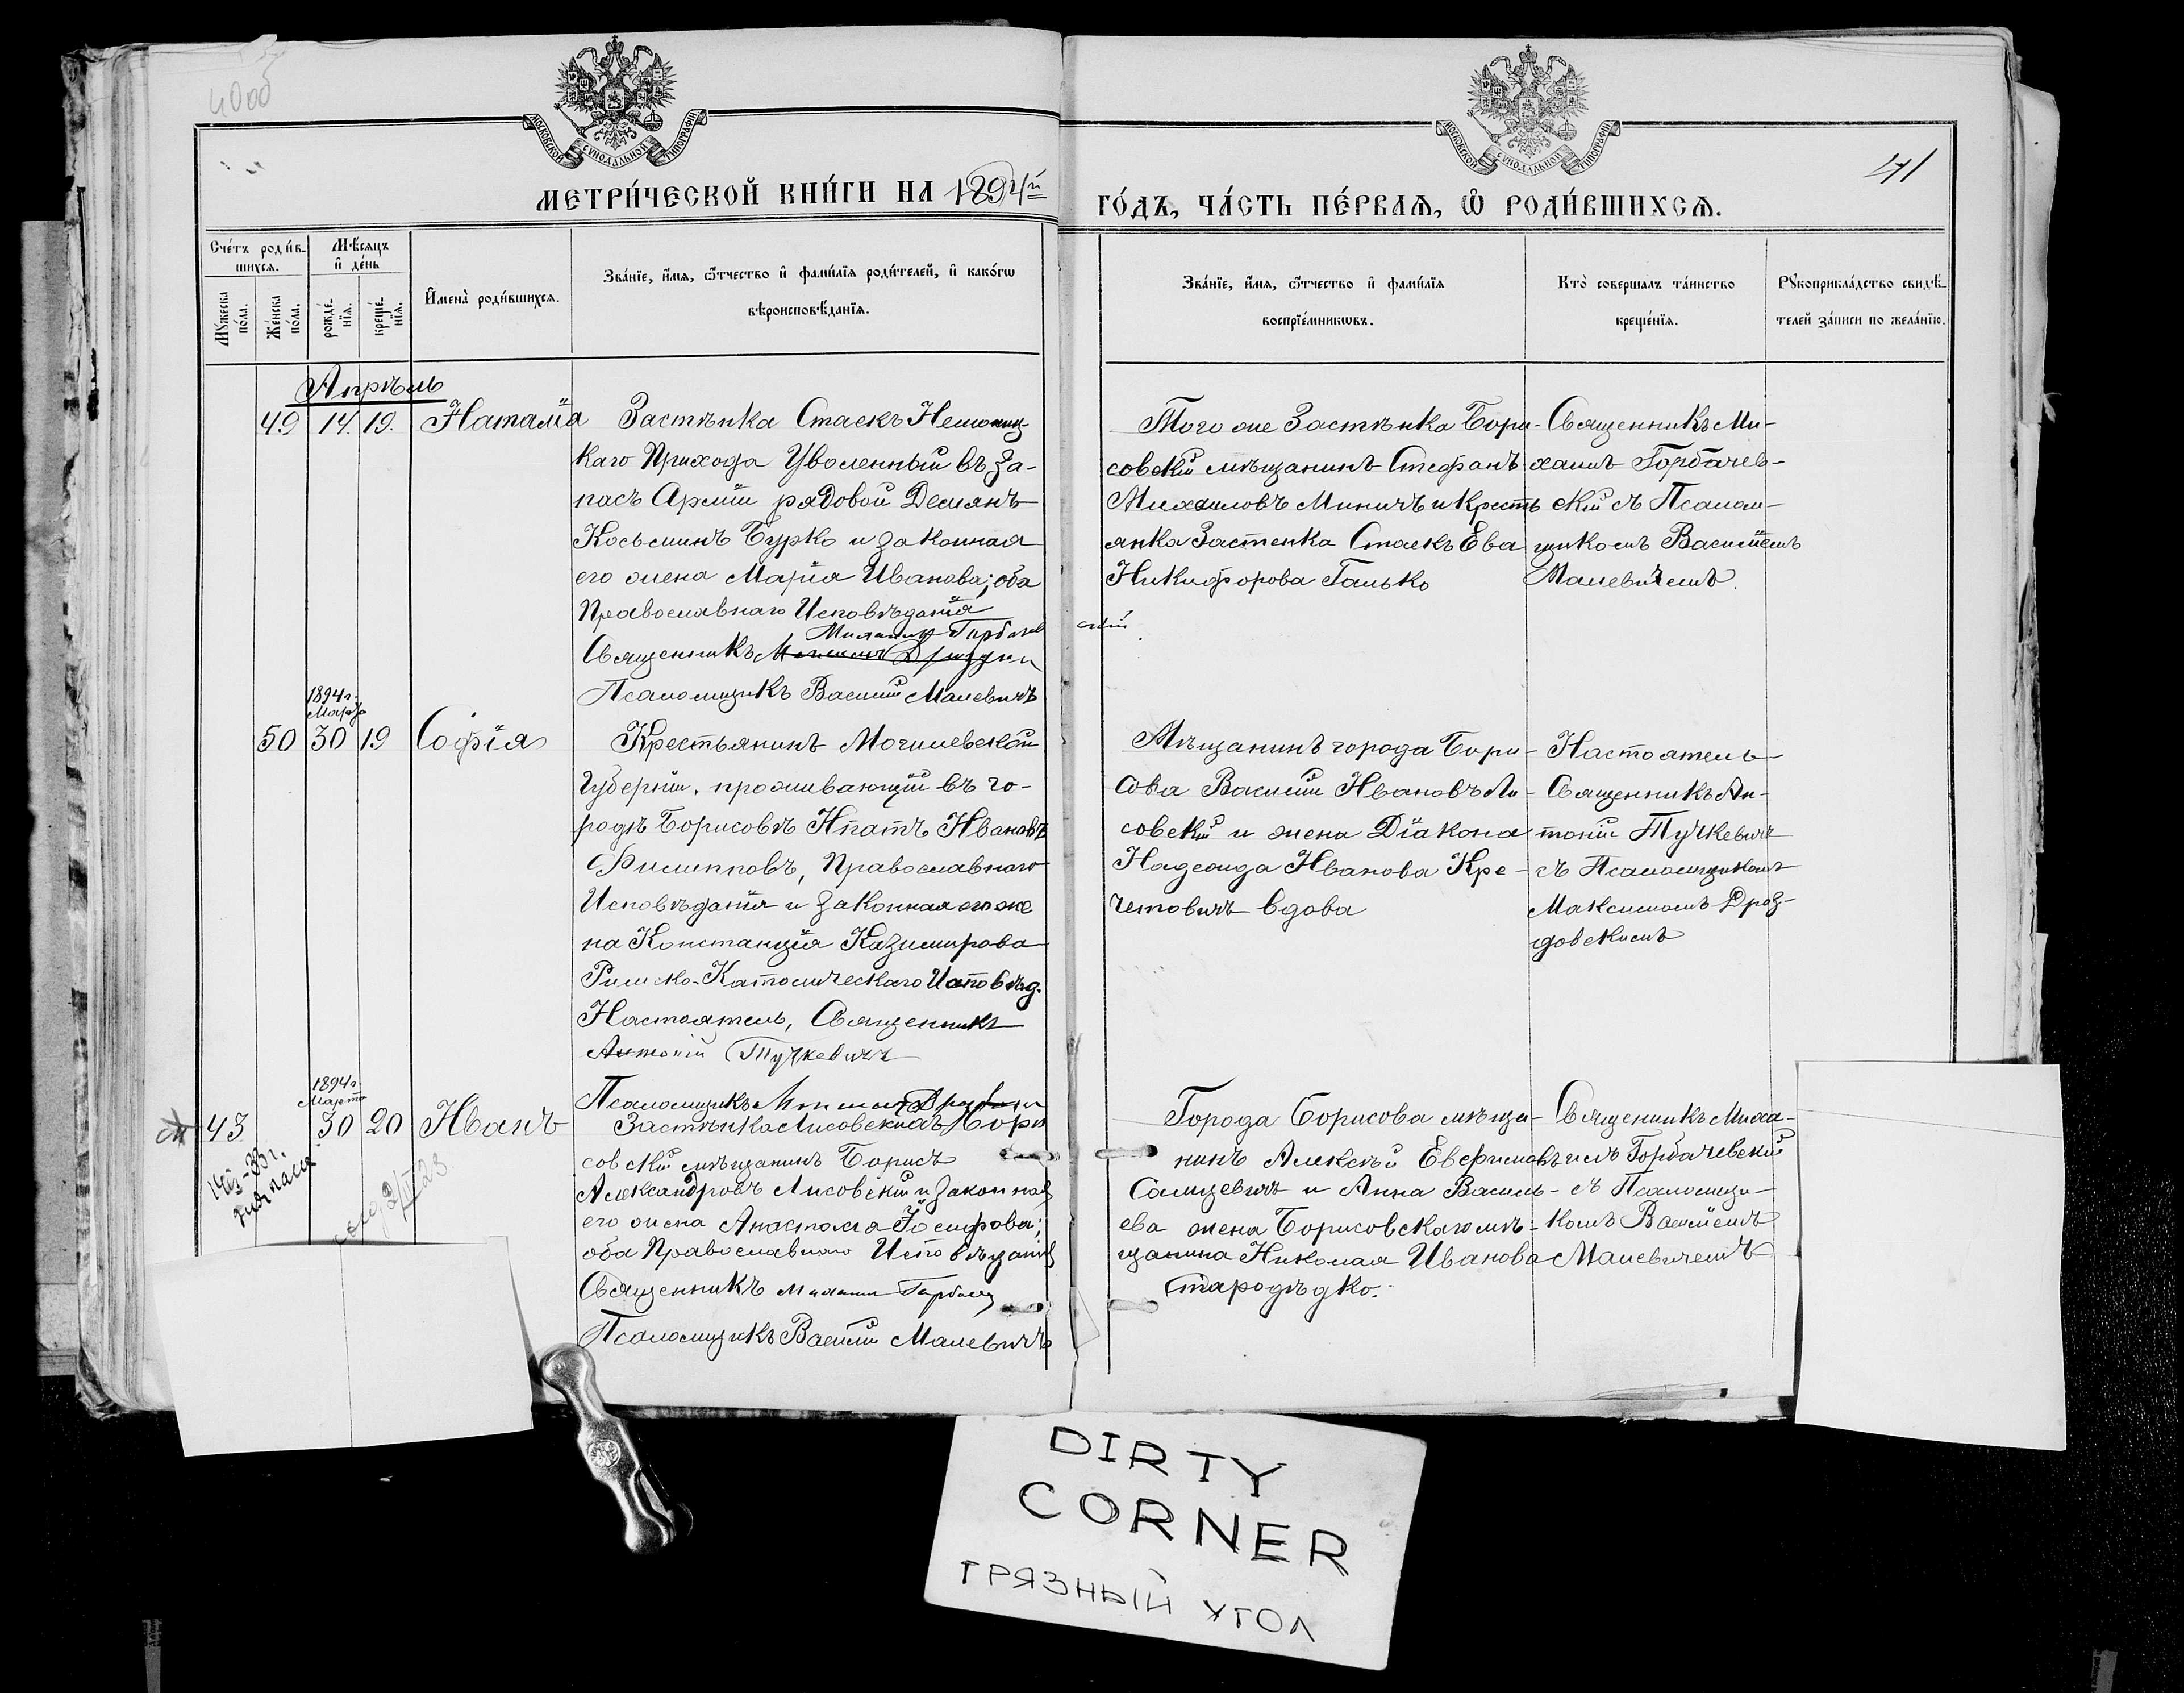 41
МОСКОВСКОЙ СУНОДАЛЬНОЙ ТИПОГРАФІИ
МОСКОВСКОЙ СУНОДАЛЬНОЙ ТИПОГРАФІИ
МЕТРИ́ЧЕСКОЙ КНИ́ГИ НА 1894й
ГО́ДЪ, ЧА́СТЬ ПЕ́РВАѦ, Ѡ҆ РОДИ́ВШИХСѦ.
Сче́тъ роди́в-
шихсѧ.
Мꙋжеска по́ла.
Же́нска по́ла.
Мѣ́сѧцъ
и҆ де́нь
рожде́-
нїѧ.
креще́-
нїѧ.
И҆мена̀ роди́вшихсѧ.
Зва́нїе, и҆́мѧ, ѻ҆́тчество и҆ фами́лїѧ роди́телей, и҆ како́гѡ
вѣроисповѣ́данїѧ.
Зва́нїе, и҆́мѧ, ѻ҆́тчество и҆ фами́лїѧ
воспрїе́мникѡвъ.
Кто̀ совершалъ та́инство
креще́нїѧ.
Рꙋкоприкла́дство свидѣ́-
телей за́писи по жела́нїю.
Апрѣль
49 14. 19. Наталія
Застѣнка Стаекъ
каго Прихода Уволенный въ за-
пасъ Арміи рядовой Деміянъ
Косьминъ Бурко и законная
его жена Марія Иванова; оба
Православнаго Исповѣданія
Михаилъ Горбачев
скій
Священникъ
Псаломщикъ Василій Малевичъ
Того же Застѣнка Бори-
совскій мѣщанинъ Стефанъ
Михаиловъ Миничъ и крестъ
янка Застенка Стаекъ Ева
Никифорова Галько
Священникъ Ми-
хаилъ Горбачев-
скій съ Псалом-
щикомъ Василіемъ
Малевичемъ.
1894 г.
Марта
50 30 19 Софія
Крестьянинъ Могилевской
Губерніи, проживающій въ го-
родѣ Борисовѣ Игнатъ Ивановъ
Филипповъ, Православнаго
Исповѣданія и законная его же
на Констанція Казимирова
Римско-Католическаго Исповѣд.
Настоятель, Священникъ
Антоній Тучкевичъ
Псаломщикъ
Мѣщанинъ города Бори-
сова Василій Ивановъ Ли-
совскій и жена Діакона
Надежда Иванова Кре-
четовичъ вдова
Настоятель
Священникъ Ан-
тоній Тучкевичъ
съ Псаломщикомъ
Максимомъ Дроз-
довскимъ
1894 г.
Марта
43 30 20 Иванъ
Застѣнка Лисовскихъ Бори
совскій мѣщанинъ Борисъ
Александровъ Лисовскій и законная
его жена Анастасія Іосифова;
оба Православнаго Исповѣданія
Священникъ Михаилъ
Псаломщикъ Василій Малевичъ
Города Борисова мѣща-
нинъ Алексѣй
и Анна Василь-
ева жена Борисовскаго мѣ-
щанина Николая Иванова
Стародѣдко.
Священникъ Миха-
илъ Горбачевскій
съ Псаломщи-
комъ Василіемъ
Малевичемъ
DIRTY
CORNER
ГРЯЗНЫЙ УГОЛ